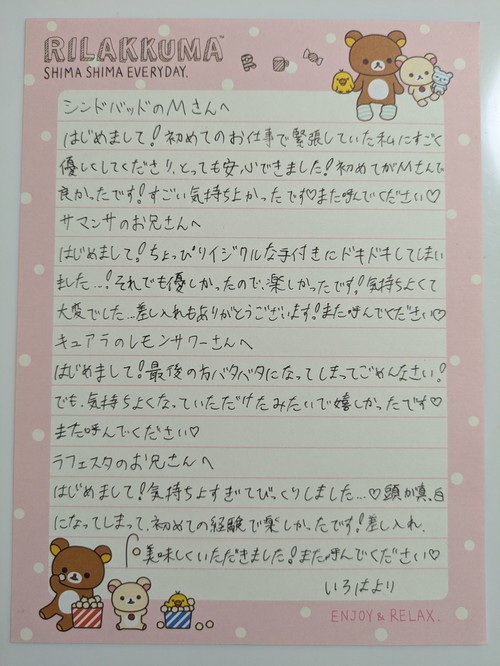 RILAKKUMA™
SHIMA SHIMA EVERYDAY.
シンドバッドのMさんへ
はじめまして!初めてのお仕事で緊張していた私にすごく
優しくしてくださり、とっても安心できました!初めてがMさんで
良かったです!すごい気持ちよかったです♡また呼んでください♡
サマンサのお兄さんへ
はじめまして!ちょっぴりイジワルな手付きにドキドキしてしまい
ました…!それでも優しかったので、楽しかったです!気持ちよくて
大変でした…差し入れもありがとうございます!また呼んでください♡
キュアラのレモンサワーさんへ
はじめまして!最後の方バタバタになってしまってごめんなさい!
でも、気持ちよくなっていただけたみたいで嬉しかったです♡
また呼んでください♡
ラフェスタのお兄さんへ
はじめまして!気持ちよすぎてびっくりしました…♡頭が真っ白
になってしまって、初めての経験で楽しかったです!差し入れ、
美味しくいただきました!また呼んでください♡
いろはより
ENJOY & RELAX.